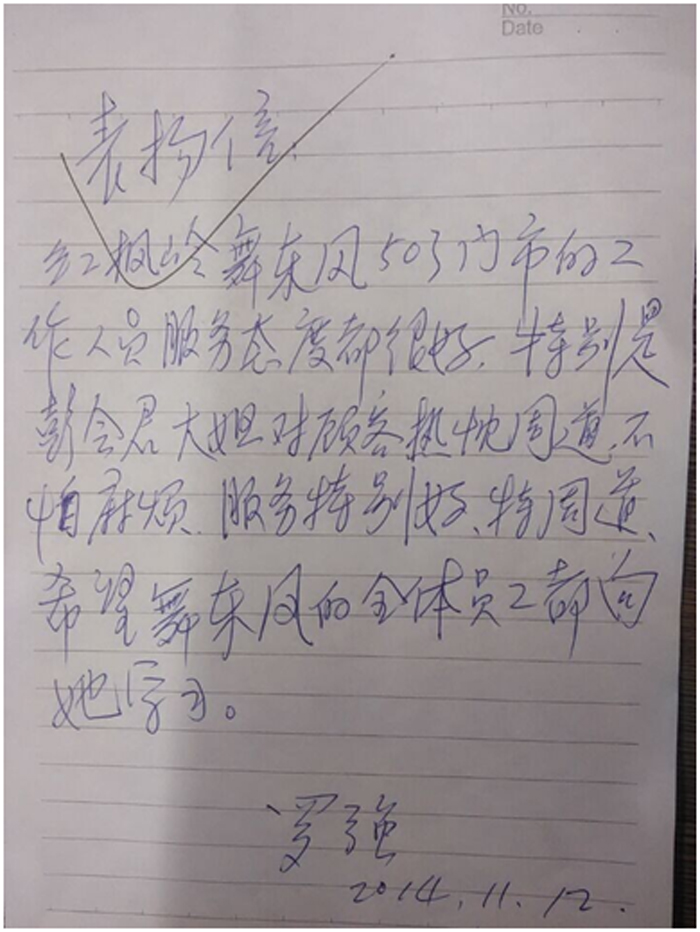 No.
Date
表扬信.
红枫岭舞东风503门市的工
作人员服务态度都很好.特别是
彭会君大姐对顾客热忱周道.不
怕麻烦.服务特别好、特周道、
希望舞东风的全体员工都向
她学习。
罗强
2014.11.12.